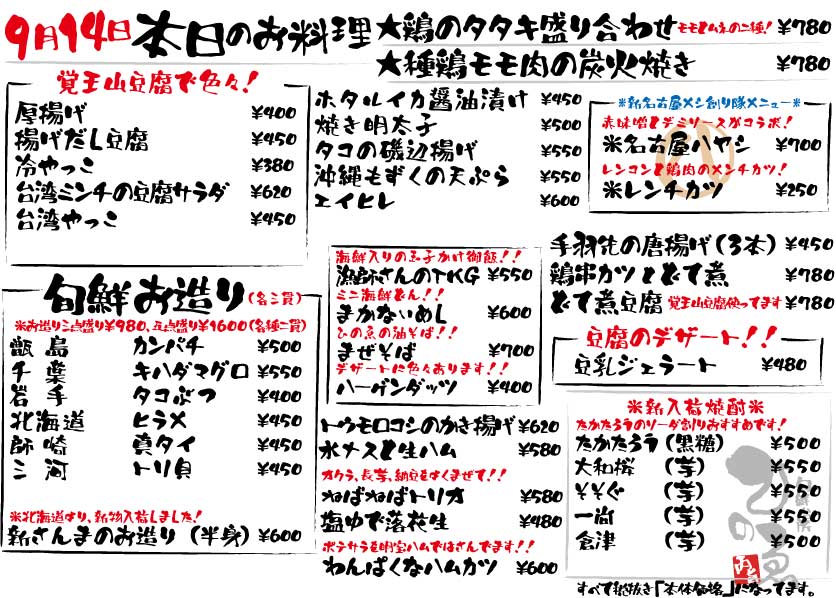 9月14日 本日のお料理
★鶏のタタキ盛り合わせ モモとムネの二種! ¥780
★種鶏モモ肉の炭火焼き ¥780
覚王山豆腐で色々!
厚揚げ ¥400
揚げだし豆腐 ¥450
冷やっこ ¥380
台湾ミンチの豆腐サラダ ¥620
台湾やっこ ¥450
ホタルイカ醤油漬け ¥450
焼き明太子 ¥500
タコの磯辺揚げ ¥550
沖縄もずくの天ぷら ¥550
エイヒレ ¥600
※新名古屋メシ創り隊メニュー※
赤味噌とデミソースがコラボ!
※名古屋ハヤシ ¥700
レンコンと鶏肉のメンチカツ!
※レンチカツ ¥250
旬鮮お造り(各三貫)
※お造り三点盛り¥980、五点盛り¥1600(各種二貫)
甑島 カンパチ ¥500
千葉 キハダマグロ ¥550
岩手 タコぶつ ¥400
北海道 ヒラメ ¥450
師崎 真タイ ¥450
三河 トリ貝 ¥450
※北海道より、新物入荷しました!
新さんまのお造り(半身) ¥600
海鮮入りの玉子かけ御飯!!
漁師さんのTKG ¥550
ミニ海鮮どん!!
まかないめし ¥600
ひの魚の油そば!!
まぜそば ¥700
デザートに色々あります!!
ハーゲンダッツ ¥400
トウモロコシのかき揚げ ¥620
水ナスと生ハム ¥580
オクラ、長芋、納豆をよくまぜて!!
ねばねばトリオ ¥580
塩ゆで落花生 ¥480
ポテサラを明宝ハムではさんでます!!
わんぱくなハムカツ ¥600
手羽先の唐揚げ(3本) ¥450
鶏串カツとどて煮 ¥780
どて煮豆腐 覚王山豆腐使ってます ¥780
豆腐のデザート!!
豆乳ジェラート ¥480
※新入荷焼酎※
たかたろうのソーダ割りおすすめです!
たかたろう(黒糖) ¥500
大和桜(芋) ¥500
¥¥ぐ(芋) ¥500
一尚(芋) ¥500
倉津(芋) ¥500
すべて税抜き「本体価格」になってます。